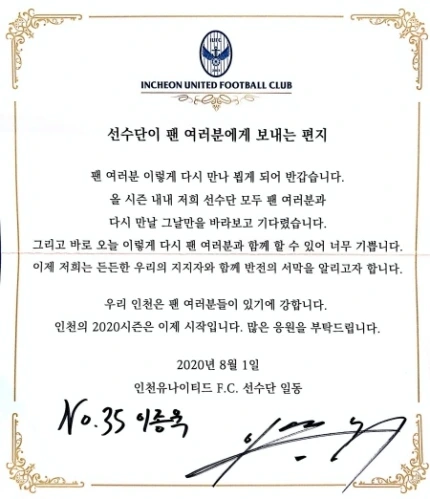 IUFC
INCHEON UNITED FOOTBALL CLUB
선수단이 팬 여러분에게 보내는 편지
팬 여러분 이렇게 다시 만나 뵙게 되어 반갑습니다.
올 시즌 내내 저희 선수단 모두 팬 여러분과
다시 만날 그날만을 바라보고 기다렸습니다.
그리고 바로 오늘 이렇게 다시 팬 여러분과 함께 할 수 있어 너무 기쁩니다.
이제 저희는 든든한 우리의 지지자와 함께 반전의 서막을 알리고자 합니다.
우리 인천은 팬 여러분들이 있기에 강합니다.
인천의 2020시즌은 이제 시작입니다. 많은 응원을 부탁드립니다.
2020년 8월 1일
인천유나이티드 F.C. 선수단 일동
No.35 이종욱